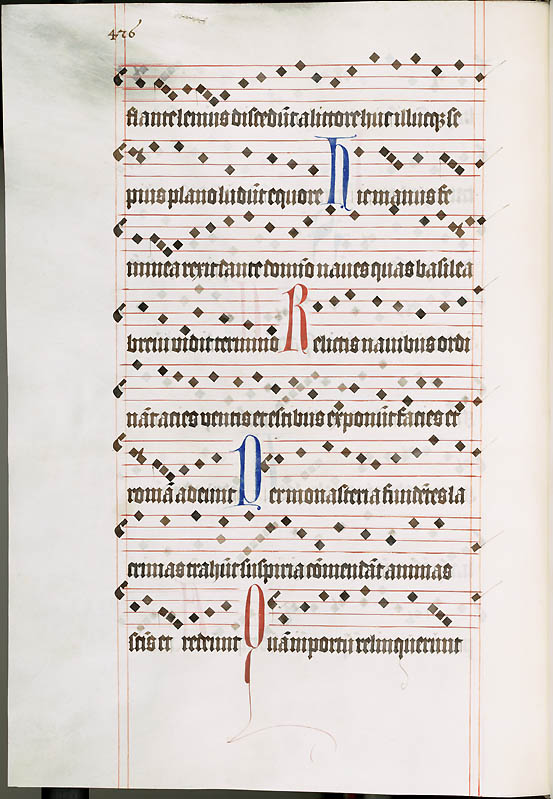 flante lenius discedũt a littore huc illucqꝫ se
pius plano ludũt equore Hic manus fe
minea rexit dante domiõ naues quas basilea
breui vidit termino Relictis nauibus ordi
nãt acies ventis et estibus exponũt facies et
romã adeunt Per monasteria fundẽtes la
crimas trahũt suspiria cõmendãt animas
sctĩs et redeunt Quã in portu relinquerunt